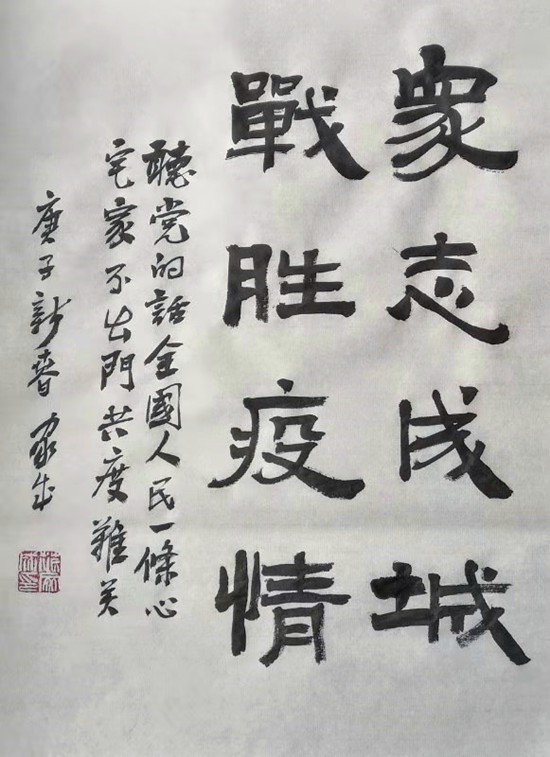 眾志成城
戰胜疫情
聽党的話全國人民一條心
宅家不出門共度難关
庚子新春家生